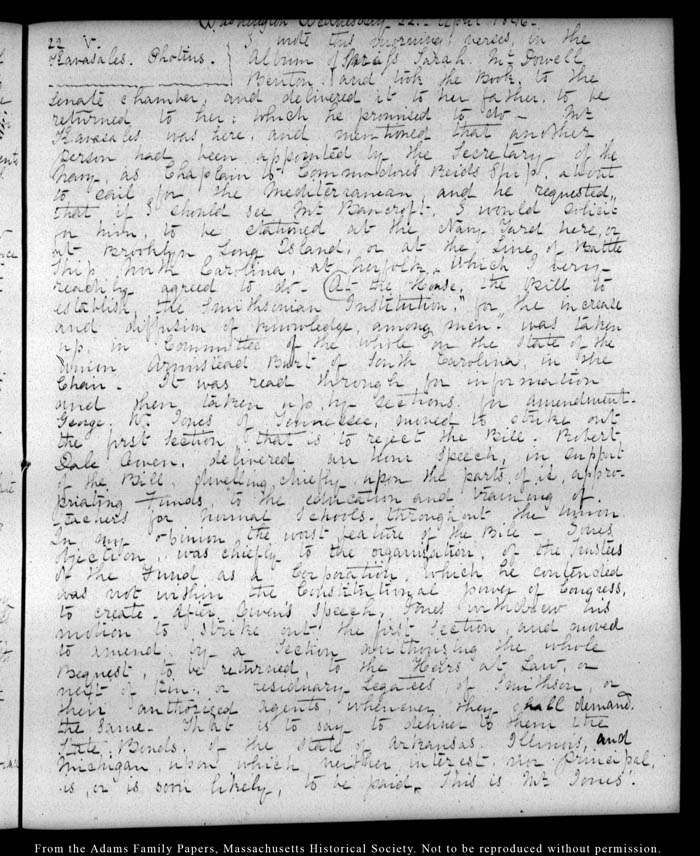 Washington Wednesday 22. April 1846.
22 V.
Kavasales. Photius.
I wrote this morning, verses, in the
Album of Miss Sarah Mc Dowell
Benton, and took the Book, to the
Senate chamber, and delivered it to her father, to be
returned to her; which he promised to do – Mr
Kavasales was here, and mentioned that another
person had been appointed by the Secretary of the
Navy, as Chaplain to Commodore Reids Ship, about
to sail for the Mediterranean, and he requested,
that if I should see Mr Bancroft, I would solicit
for him, to be stationed at the Navy Yard here, or
at Brooklyn Long Island, or at the Line of Battle
Ship North Carolina, at Norfolk, which I very
readily agreed to do – At the House, the Bill to
establish, the Smithsonian Institution, "for the increase
and diffusion of knowledge, among men" was taken
up, in Committee of the whole on the state of the
Union Armistead Burt of South Carolina, in the
Chair – It was read through for information
and then taken up, by Sections, for amendment.
George W. Jones of Tennessee, moved to strike out
the first Section, that is to reject the Bill. Robert
Dale Owen, delivered an hour speech, in support
of the Bill, dwelling chiefly, upon the parts of it, appro-
priating Funds, to the education and training of
teachers for Normal Schools throughout the Union
In my opinion the worst feature of the Bill – Jones'
objection, was chiefly to the organisation, of the trustees
of the Fund as a Corporation, which he contended
was not within the Constitutional power of Congress,
to create. After Owen's Speech, Jones withdrew his
motion to strike out the first Section, and moved
to amend by a Section authorising the whole
Bequest, to be returned, to the Heirs at Law, or
next of Kin, or residuary Legatees of Smithson, or
their authorised agents, whenever they shall demand
the same – That is to say to deliver to them the
State Bonds, of the State of Arkansas, Illinois, and
Michigan, upon which neither interest nor principal,
is, or is soon likely, to be paid. This is Mr Jones'.
From the Adams Family Papers, Massachusetts Historical Society. Not to be reproduced without permission.